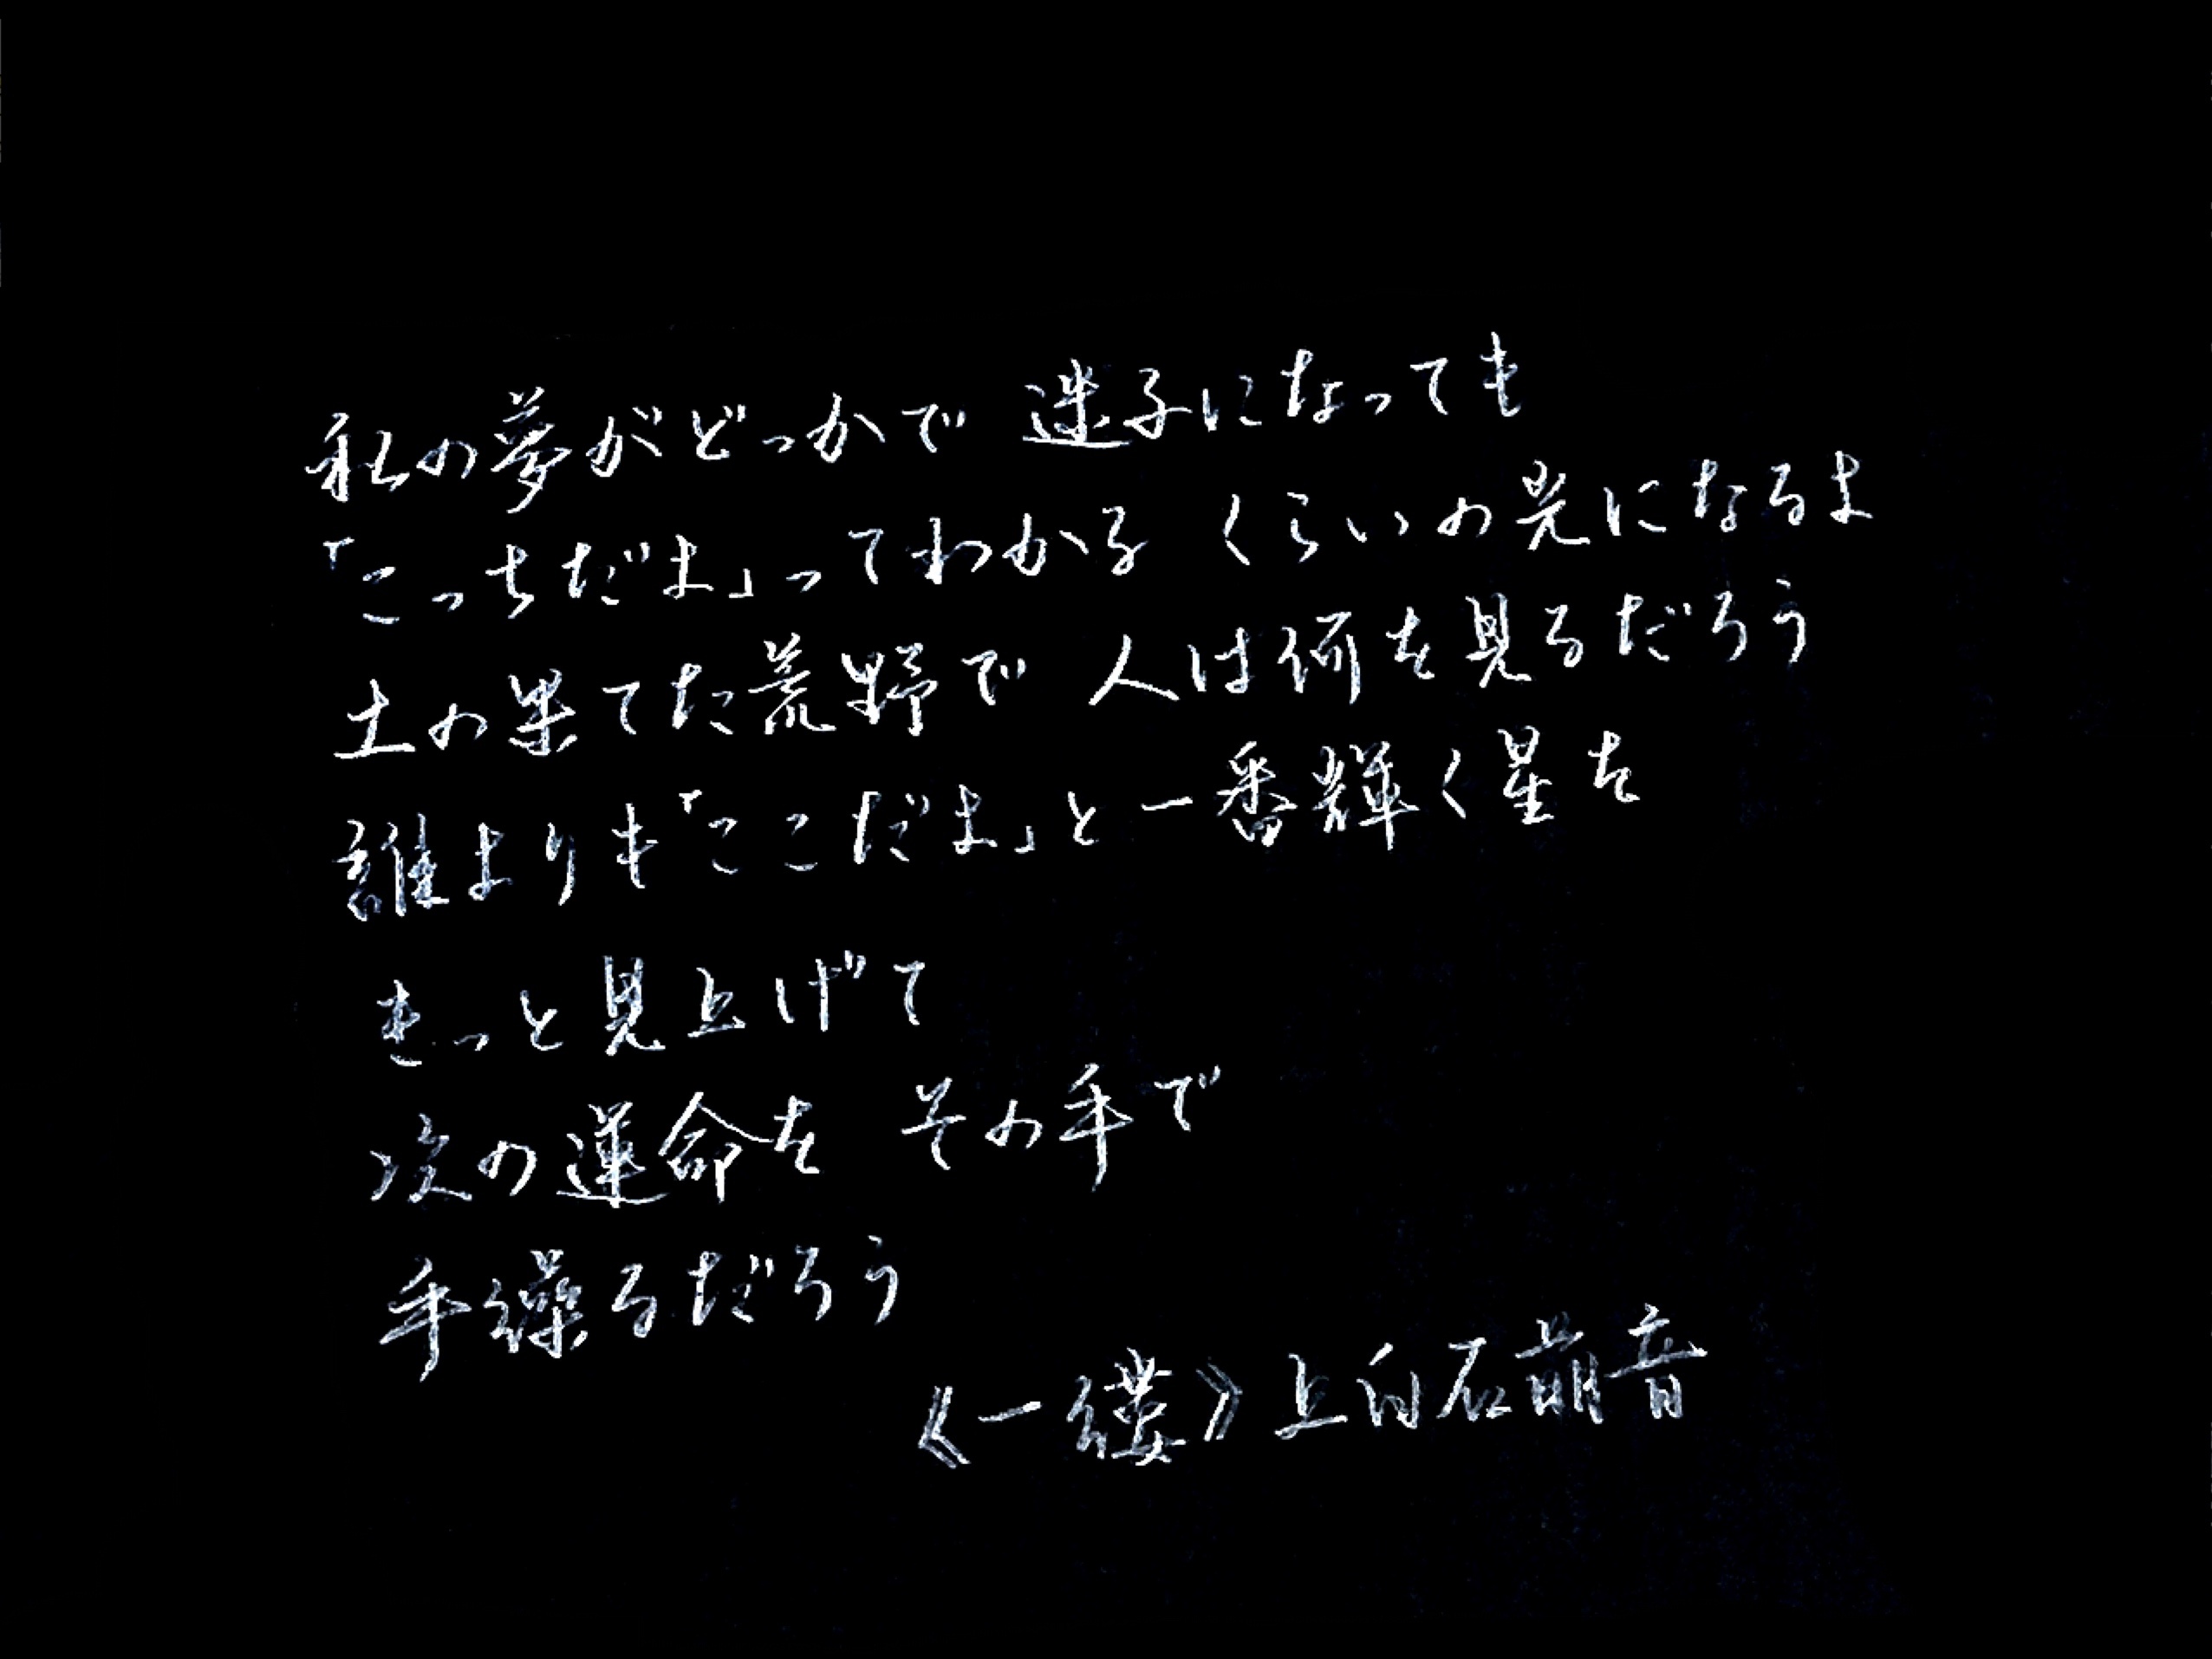 私の夢がどっかで 迷子になっても
「こっちだよ」ってわかる くらいの光になるよ
土の果てた荒野で 人は何を見るだろう
誰よりも「ここだよ」と一番輝く星を
きっと見上げて
次の運命を その手で
手繰るだろう
《一縷》上白石萌音